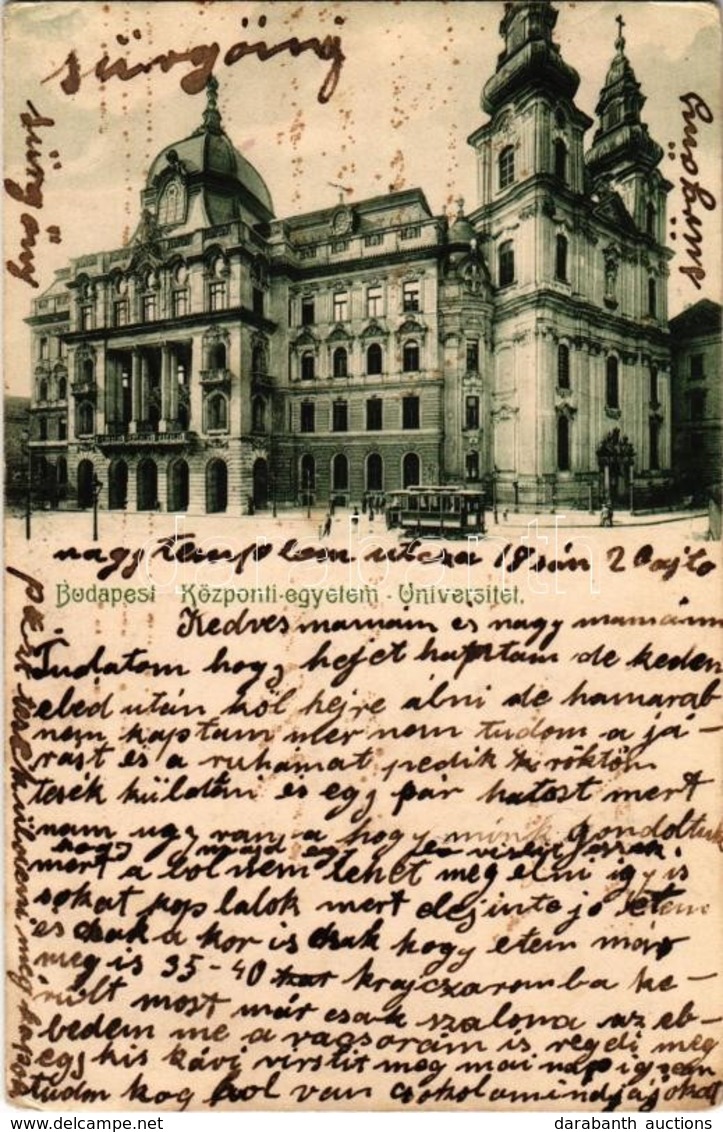 sürgöng
sürgöny
sürgöny
nagy templom utcza 18 szán 2 ajto
Budapest Központi-egyetem - Universitet.
Kedves mamám és nagy mamám
Tudatom hogy hejet kaptam de keden
ebed után köl hejre álni de hamarab
nem kaptam mer nem tudom a já-
rast és a ruhámat pedik köröktön
tesék küldeni és egy pár hatost mert
nam ugy van a hogy mink gondoltuk
hogy majd egy
mert a bol nem lehet meg elni igy is
sokat kop lalok mert dejinte jó etem
és csak a kor is csak hogy etem már
meg is 35-40 krajczaromba ke-
rült most már csak szalona az eb-
bedem me a vacsorám is regeli meg
egy kis kávi virstit meg mai nap igsem
tudm hog hol van csokolamindjájokat
darabanth auctions
www.darabanth.com